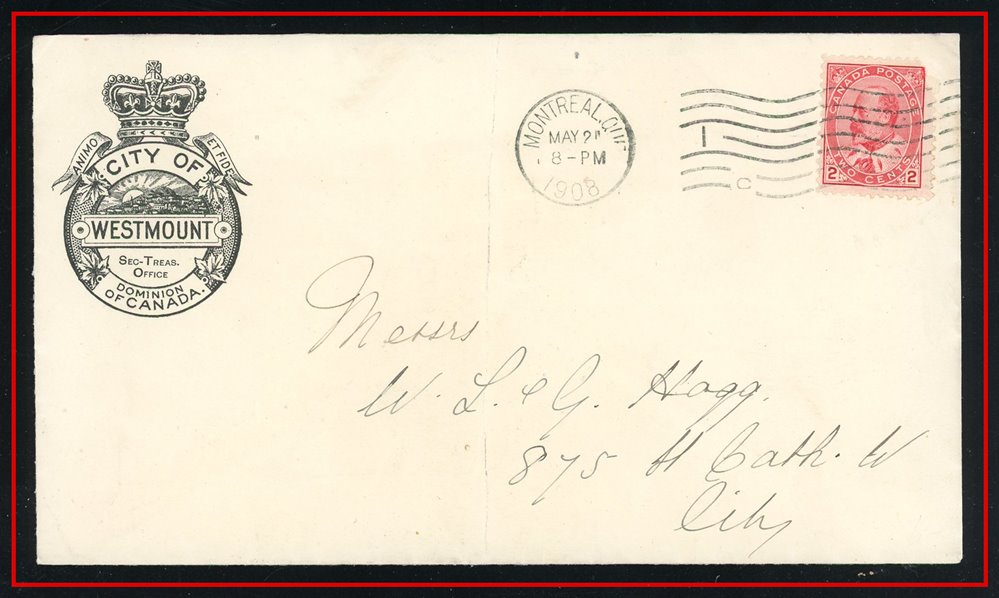 ANIMO ET FIDE
CITY OF
WESTMOUNT
SEC-TREAS.
OFFICE
DOMINION
OF CANADA.
MONTREAL, QUE
MAY 21
8-PM
1908
1
C
CANADA POSTAGE
2 2
TWO CENTS
Messrs
W. L. & G. Hogg.
875 St Cath. W
City